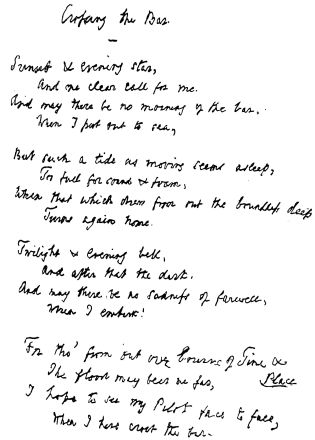 Crossing the Bar.
Sunset & evening star,
And one clear call for me.
And may there be no moaning of the bar,
When I put out to sea,
But such a tide as moving seems asleep,
Too full for sound & foam,
When that which drew from out the boundless deep
Turns again home.
Twilight & evening bell,
And after that the dark.
And may there be no sadness of farewell,
When I embark!
For tho' from out our bourne of Time &
Place
The flood may bear me far,
I hope to see my Pilot face to face,
When I have crost the bar.